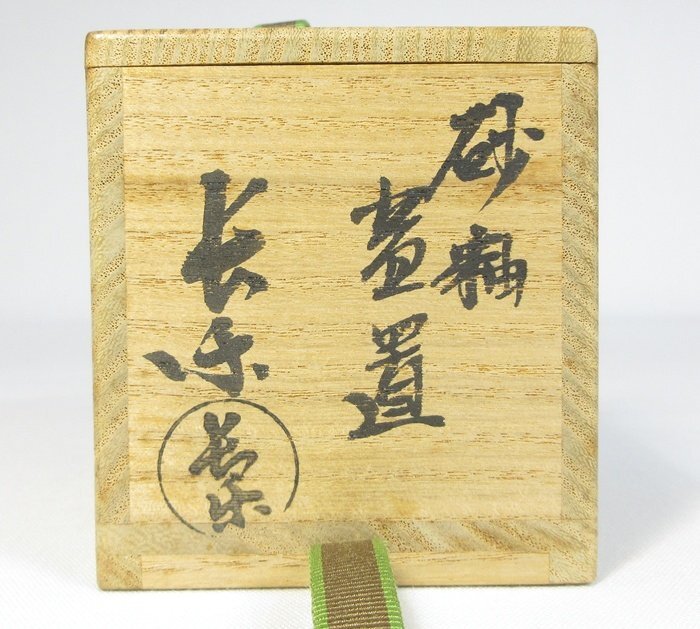 砂釉
蓋置
長楽
長楽